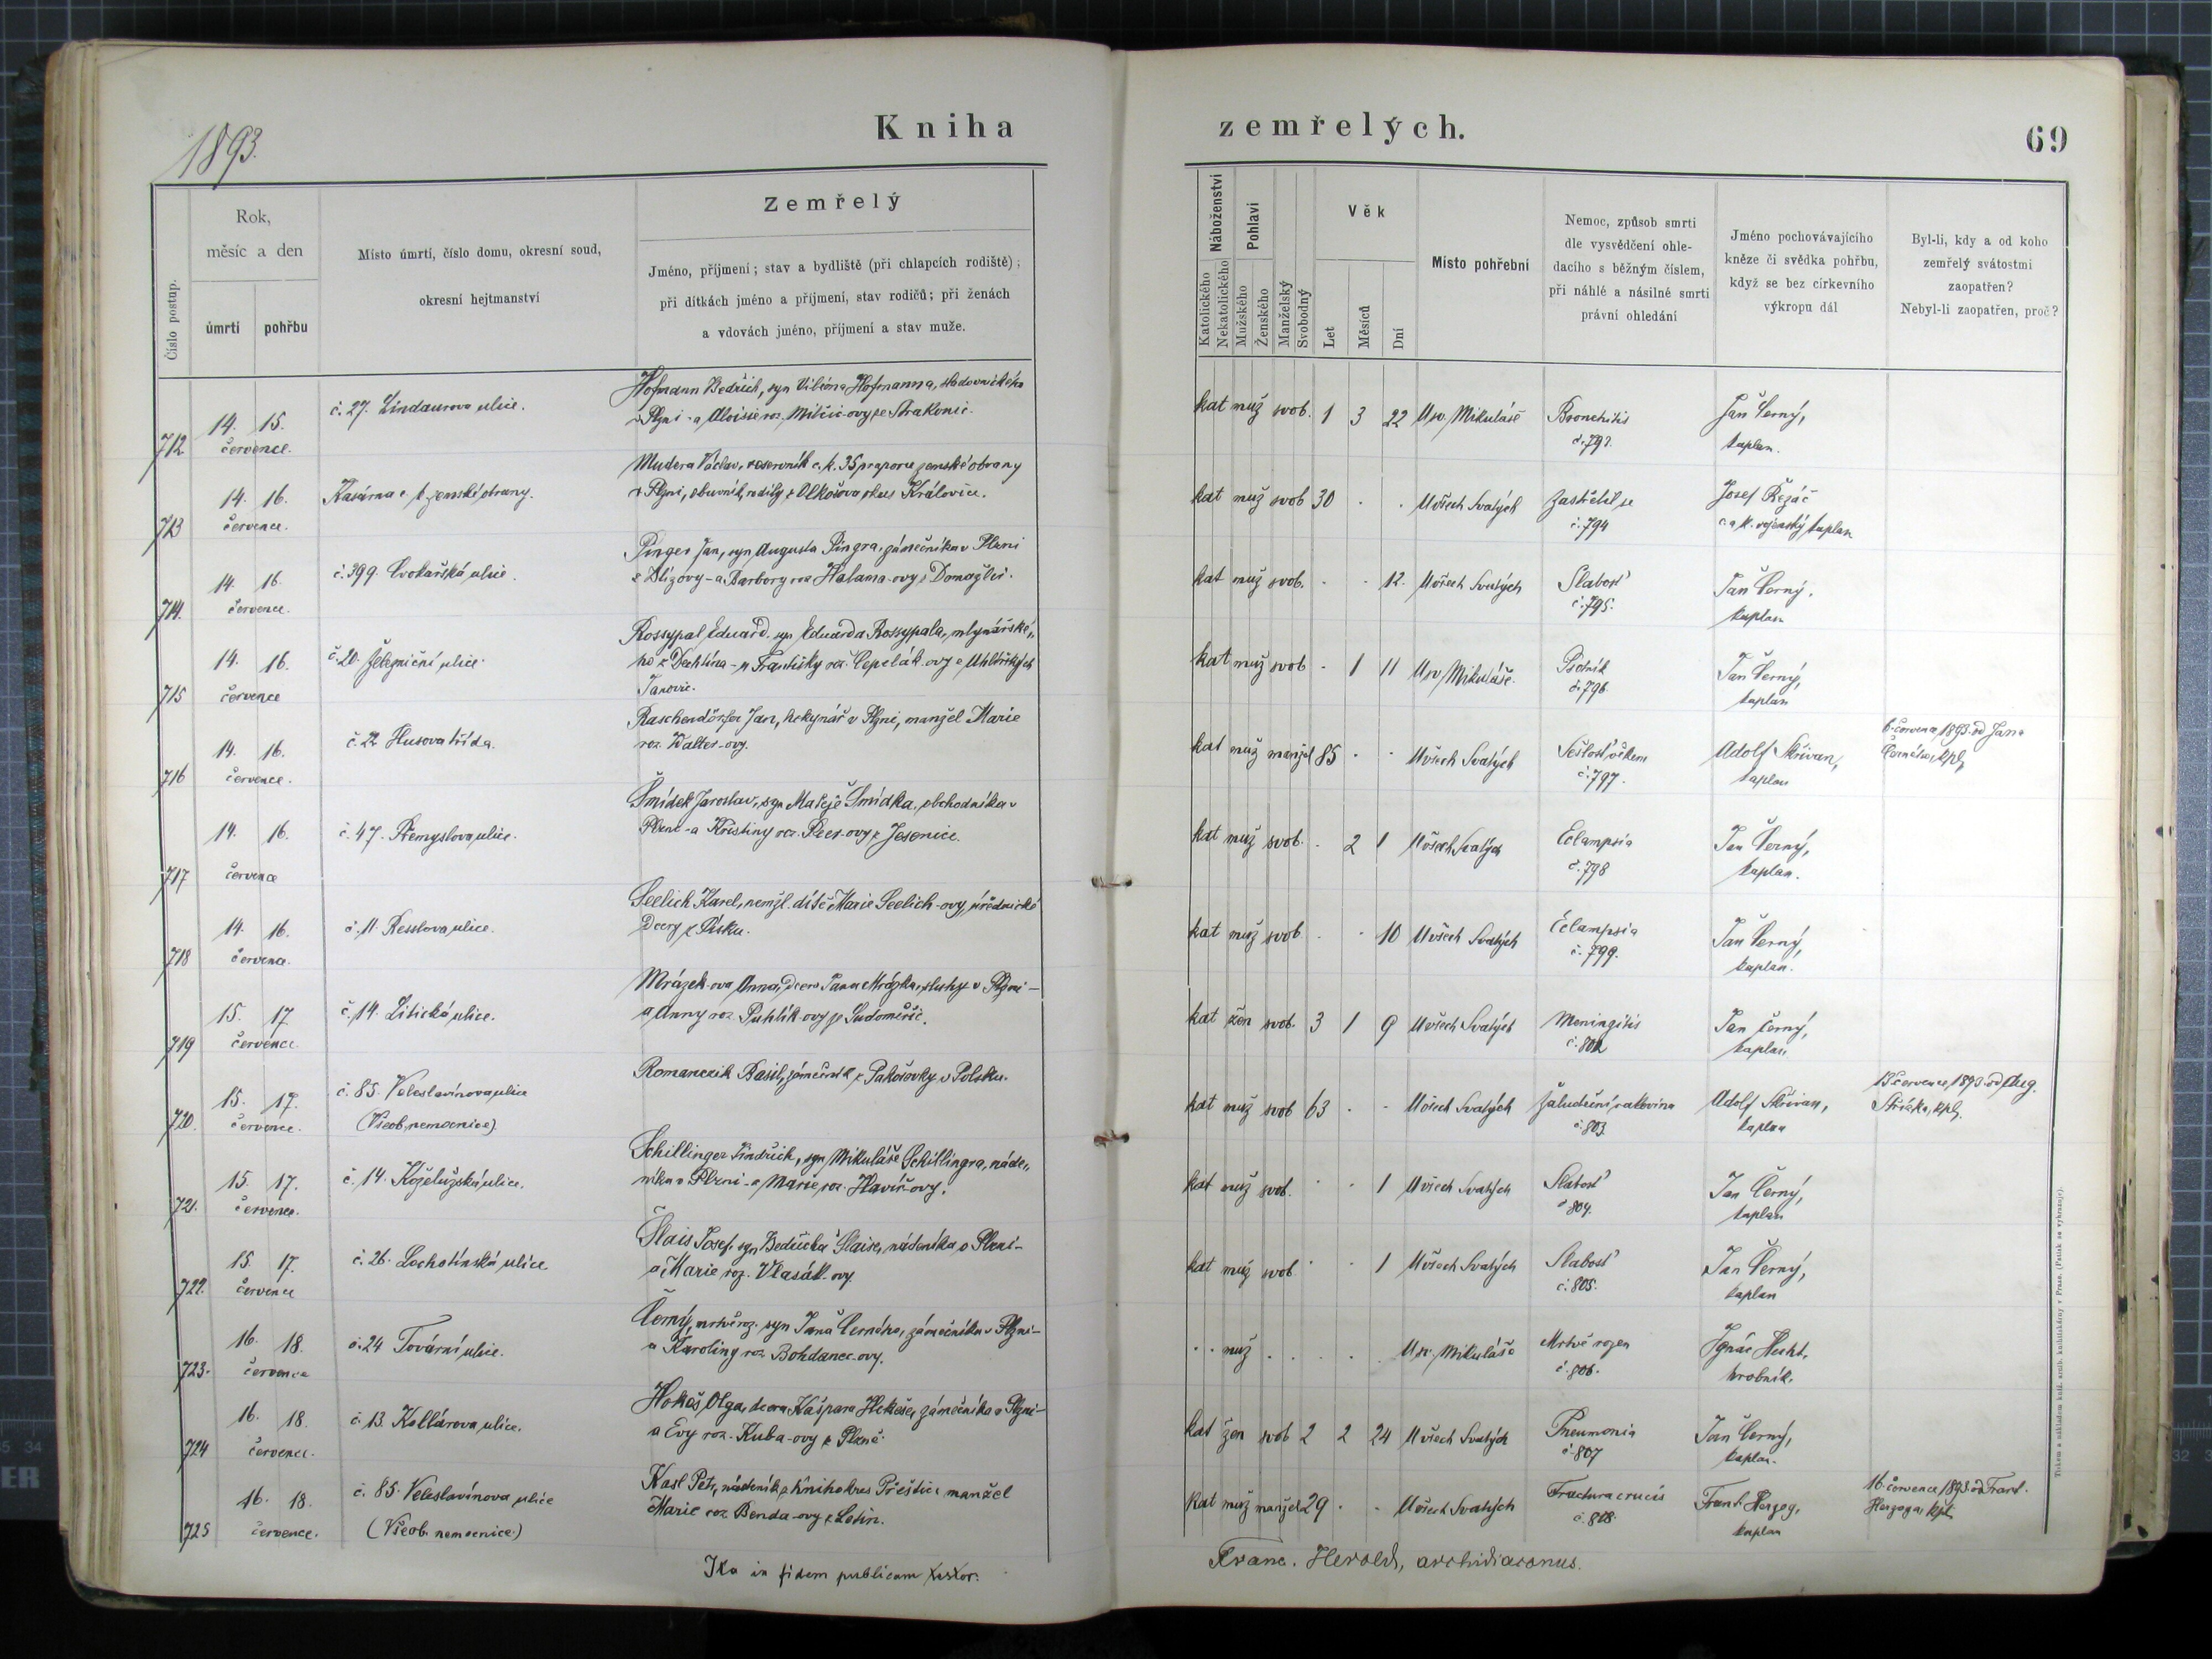 1893.
Kniha
zemřelých.
69
Číslo postup.
Rok,
měsíc a den
úmrtí
pohřbu
Místo úmrtí, číslo domu, okresní soud,
okresní hejtmanství
Zemřelý
Jméno, příjmení; stav a bydliště (při chlapcích rodiště);
při dítkách jméno a příjmení, stav rodičů; při ženách
a vdovách jméno, příjmení a stav muže.
Náboženství
Katolického
Nekatolického
Pohlaví
Mužského
Ženského
Manželský
Svobodný
Věk
Let
Měsíců
Dní
Místo pohřební
Nemoc, způsob smrti
dle vysvědčení ohle-
dacího s běžným číslem,
při náhlé a násilné smrti
právní ohledání
Jméno pochovávajícího
kněze či svědka pohřbu,
když se bez církevního
výkropu dál
Byl-li, kdy a od koho
zemřelý svátostmi
zaopatřen?
Nebyl-li zaopatřen, proč?
712 14. 15. července. č. 27. Lindaurova ulice.
Hofmann Bedřich, syn Viléma Hofmanna, sladovnického
v Plzni - a Aloisie roz. -ovy ze Strakonic.
kat muž svob. 1 3 22 U sv. Mikuláše Bronchitis č. 793. Jan Černý, kaplan.
713 14. 16. července. Kasárna c. k. zemské obrany.
Mudera Václav, reservník c. k. 35 praporu zemské obrany
v Plzni, obuvník, rodilý z okres Kralovice.
kat muž svob 30 . . U všech Svatých Zastřelil se č. 794 Josef Řezáč c. a k. vojenský kaplan
714. 14. 16. července. č. 399. Cvokařská ulice.
Pinger Jan, syn Augusta Pingra, zámečníka v Plzni
z - a Barbory roz Halama-ovy z Domažlic.
kat muž svob. . . 12. U všech Svatých Slabosť č. 795. Jan Černý, kaplan
715 14. 16. července č. 20. Železniční ulice.
Rossypal Eduard, syn Eduarda Rossypala, mlynářské-
ho z Dechtína - a Františky roz. Cepelák-ovy z Uhlířských
Janovic.
kat muž svob . 1 11 U sv. Mikuláše. Psotník č. 796. Jan Černý, kaplan
716 14. 16. července. č. 22 Husova třída.
Raschendörfer Jan, hokynář v Plzni, manžel Marie
roz. Walter-ovy.
kat muž manžel 85 . . U všech Svatých Sešlosť věkem č. 797. Adolf Skřivan, kaplan
6. července 1893. od Jana
Černého, kpl.
717 14. 16. července č. 47. Přemyslova ulice.
Šmídek Jaroslav, syn Matěje Šmídka, obchodníka v
Plzni - a Kristiny roz. Peer-ovy z Jesenice.
kat muž svob. . 2 1 U všech Svatých Eclampsia č. 798 Jan Černý, kaplan.
718 14. 16. července. č. 11. Resslova ulice.
Seelich Karel, nemžl. dítě Marie Seelich-ovy, úřednické
dcery z Písku.
kat muž svob . . 10 U všech Svatých Eclampsia č. 799. Jan Černý, kaplan.
719 15. 17 července č. 14. Litická ulice.
Mrázek-ova Anna, dcera Jana Mrázka, sluhy v Plzni -
a Anny roz. Puhlík-ovy ze Sudoměřic.
kat žen svob. 3 1 9 U všech Svatých Meningitis č. 802 Jan Černý, kaplan
720. 15. 17. července. č. 85. Veleslavínova ulice
(Všeob. nemocnice)
Romanczik Basil, zámečník z Pakošovky v Polsku.
kat muž svob 63 . . U všech Svatých Žaludeční rakovina č. 803. Adolf Skřivan, kaplan
13. července 1893. od Aug.
kpl.
721. 15. 17. července. č. 14. Koželužská ulice.
Schillinger Jindřich, syn Mikuláše Schillingra, náde-
níka v Plzni - a Marie roz. Havíř-ovy.
kat muž svob. . . 1 U všech Svatých Slabosť č 804. Jan Černý, kaplan
722. 15. 17. července č. 26. Lochotínská ulice
Šlais Josef, syn Bedřicha Šlaise, nádeníka v Plzni -
a Marie roz. Vlasák-ovy.
kat muž svob . . 1 U všech Svatých Slabosť č. 805. Jan Černý, kaplan
723. 16. 18. července č. 24 Tovární ulice.
Černý, mrtvě roz. syn Jana Černého, zámečníka v Plzni -
a Karoliny roz. Bohdanec-ovy.
. . muž . . . . . U sv. Mikuláše Mrtvě rozen č. 806. Ignác Hecht, hrobník.
724 16. 18. července. č. 13. Kollárova ulice.
Hokeš Olga, dcera Kašpara Hokeše, zámečníka v Plzni -
a Evy roz. Kuba-ovy z Plzně.
kat žen svob 2 2 24 U všech Svatých Pneumonia č. 807 Jan Černý, kaplan.
725 16. 18. července. č. 85. Veleslavínova ulice
(Všeob. nemocnice)
Kasl Petr, nádeník z Knih okres Přeštice manžel
Marie roz. Benda-ovy z Letin.
kat muž manžel 29 . . U všech Svatých Fractura cruris č. 808. Frant. Herzog, kaplan
16. července 1893. od Frant.
Herzoga, kpl.
Ita in fidem publicam testor.
Franc. Herold, archidiaconus.